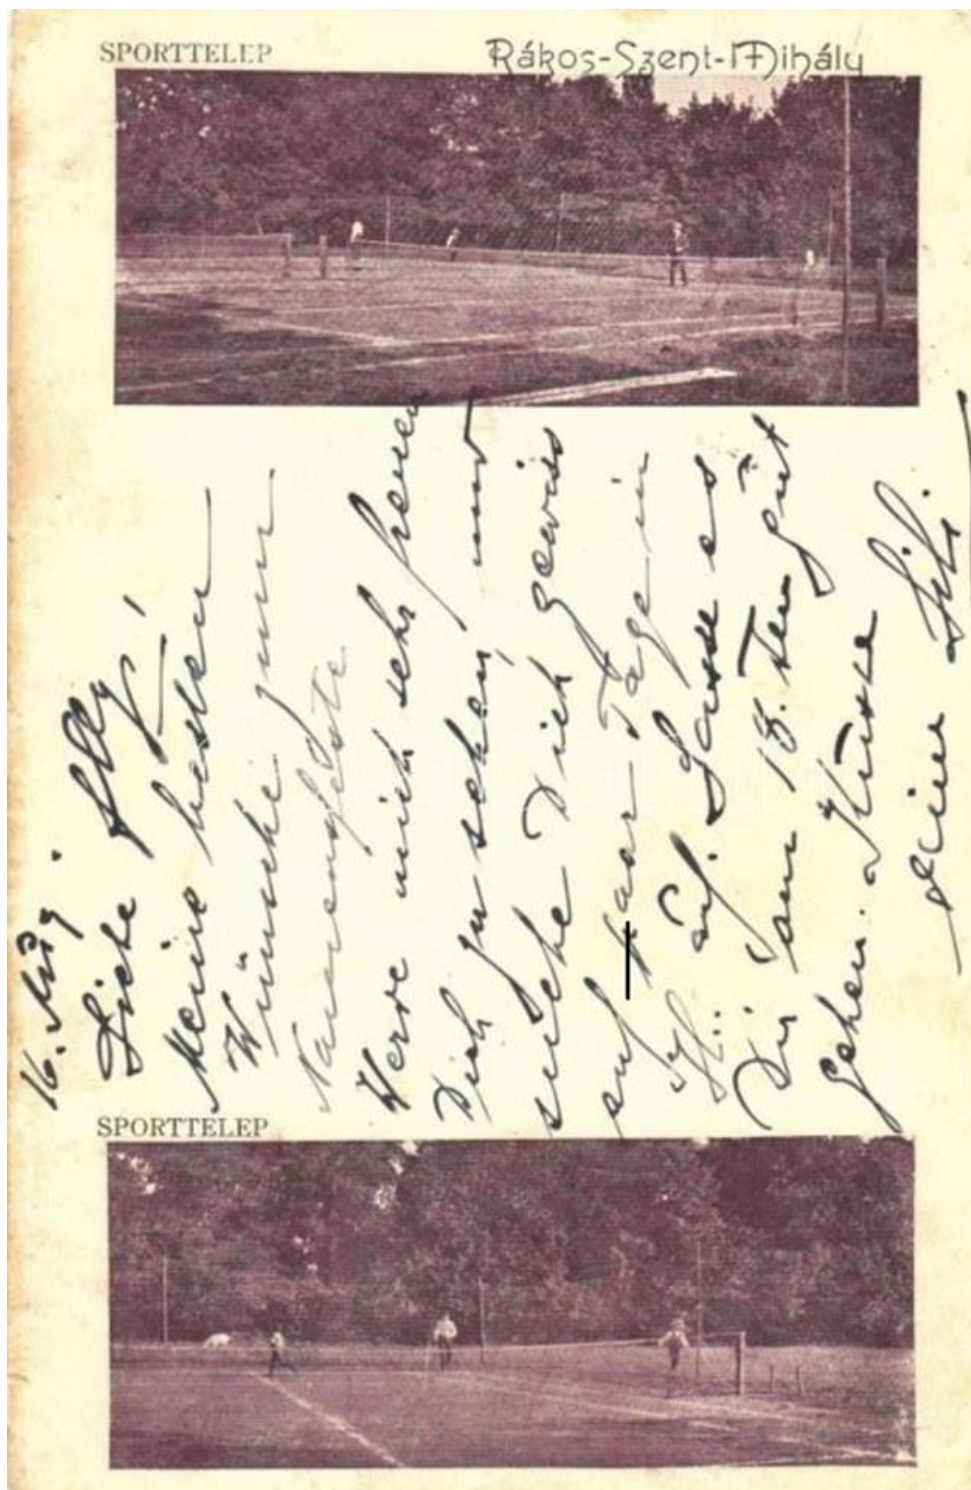 SPORTTELEP
Rákos-Szent-Mihály
16. Aug.
Liebe Ally!
Meine besten
Wünsche zum
Namensfeste
Werde mich sehr freuen
Dich zu sehen, und
suche Dich gewiss
auf paar Tage in
auf. Lasse es
Dir am 18. ten gut
gehen. Küsse
Deine Lili
SPORTTELEP